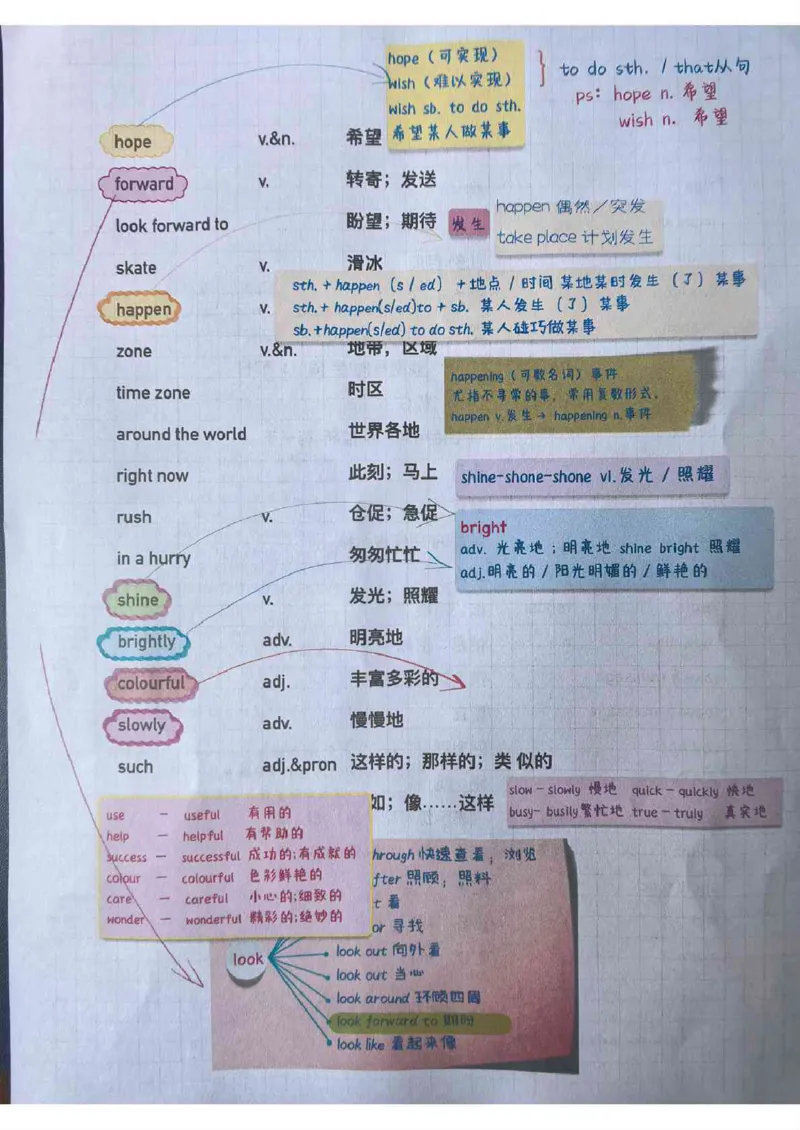 hope（可实现）
wish（难以实现）
wish sb. to do sth.
希望某人做某事
to do sth. / that从句
ps: hope n. 希望
wish n. 希望
hope v.&n. 希望
forward v. 转寄；发送
look forward to 盼望；期待
发生
happen 偶然／突发
take place 计划发生
skate v. 滑冰
sth. + happen（s / ed）+地点 / 时间 某地某时发生（了）某事
happen v.
sth. + happen(s/ed)to + sb. 某人发生（了）某事
sb.+happen(s/ed) to do sth. 某人碰巧做某事
zone v.&n. 地带，区域
time zone 时区
happening（可数名词）事件
尤指不寻常的事，常用复数形式，
happen v.发生 → happening n.事件
around the world 世界各地
right now 此刻；马上
shine-shone-shone vi.发光 / 照耀
rush v. 仓促；急促
bright
adv. 光亮地；明亮地 shine bright 照耀
adj.明亮的 / 阳光明媚的 / 鲜艳的
in a hurry 匆匆忙忙
shine v. 发光；照耀
brightly adv. 明亮地
colourful adj. 丰富多彩的
slowly adv. 慢慢地
such adj.&pron 这样的；那样的；类似的
如；像……这样
slow – slowly 慢地 quick – quickly 快地
busy- busily繁忙地 true – truly 真实地
use — useful 有用的
help — helpful 有帮助的
success — successful 成功的;有成就的
colour — colourful 色彩鲜艳的
care — careful 小心的;细致的
wonder — wonderful 精彩的;绝妙的
hrough 快速查看；浏览
fter 照顾；照料
t 看
or 寻找
look
look out 向外看
look out 当心
look around 环顾四周
look forward to 期盼
look like 看起来像